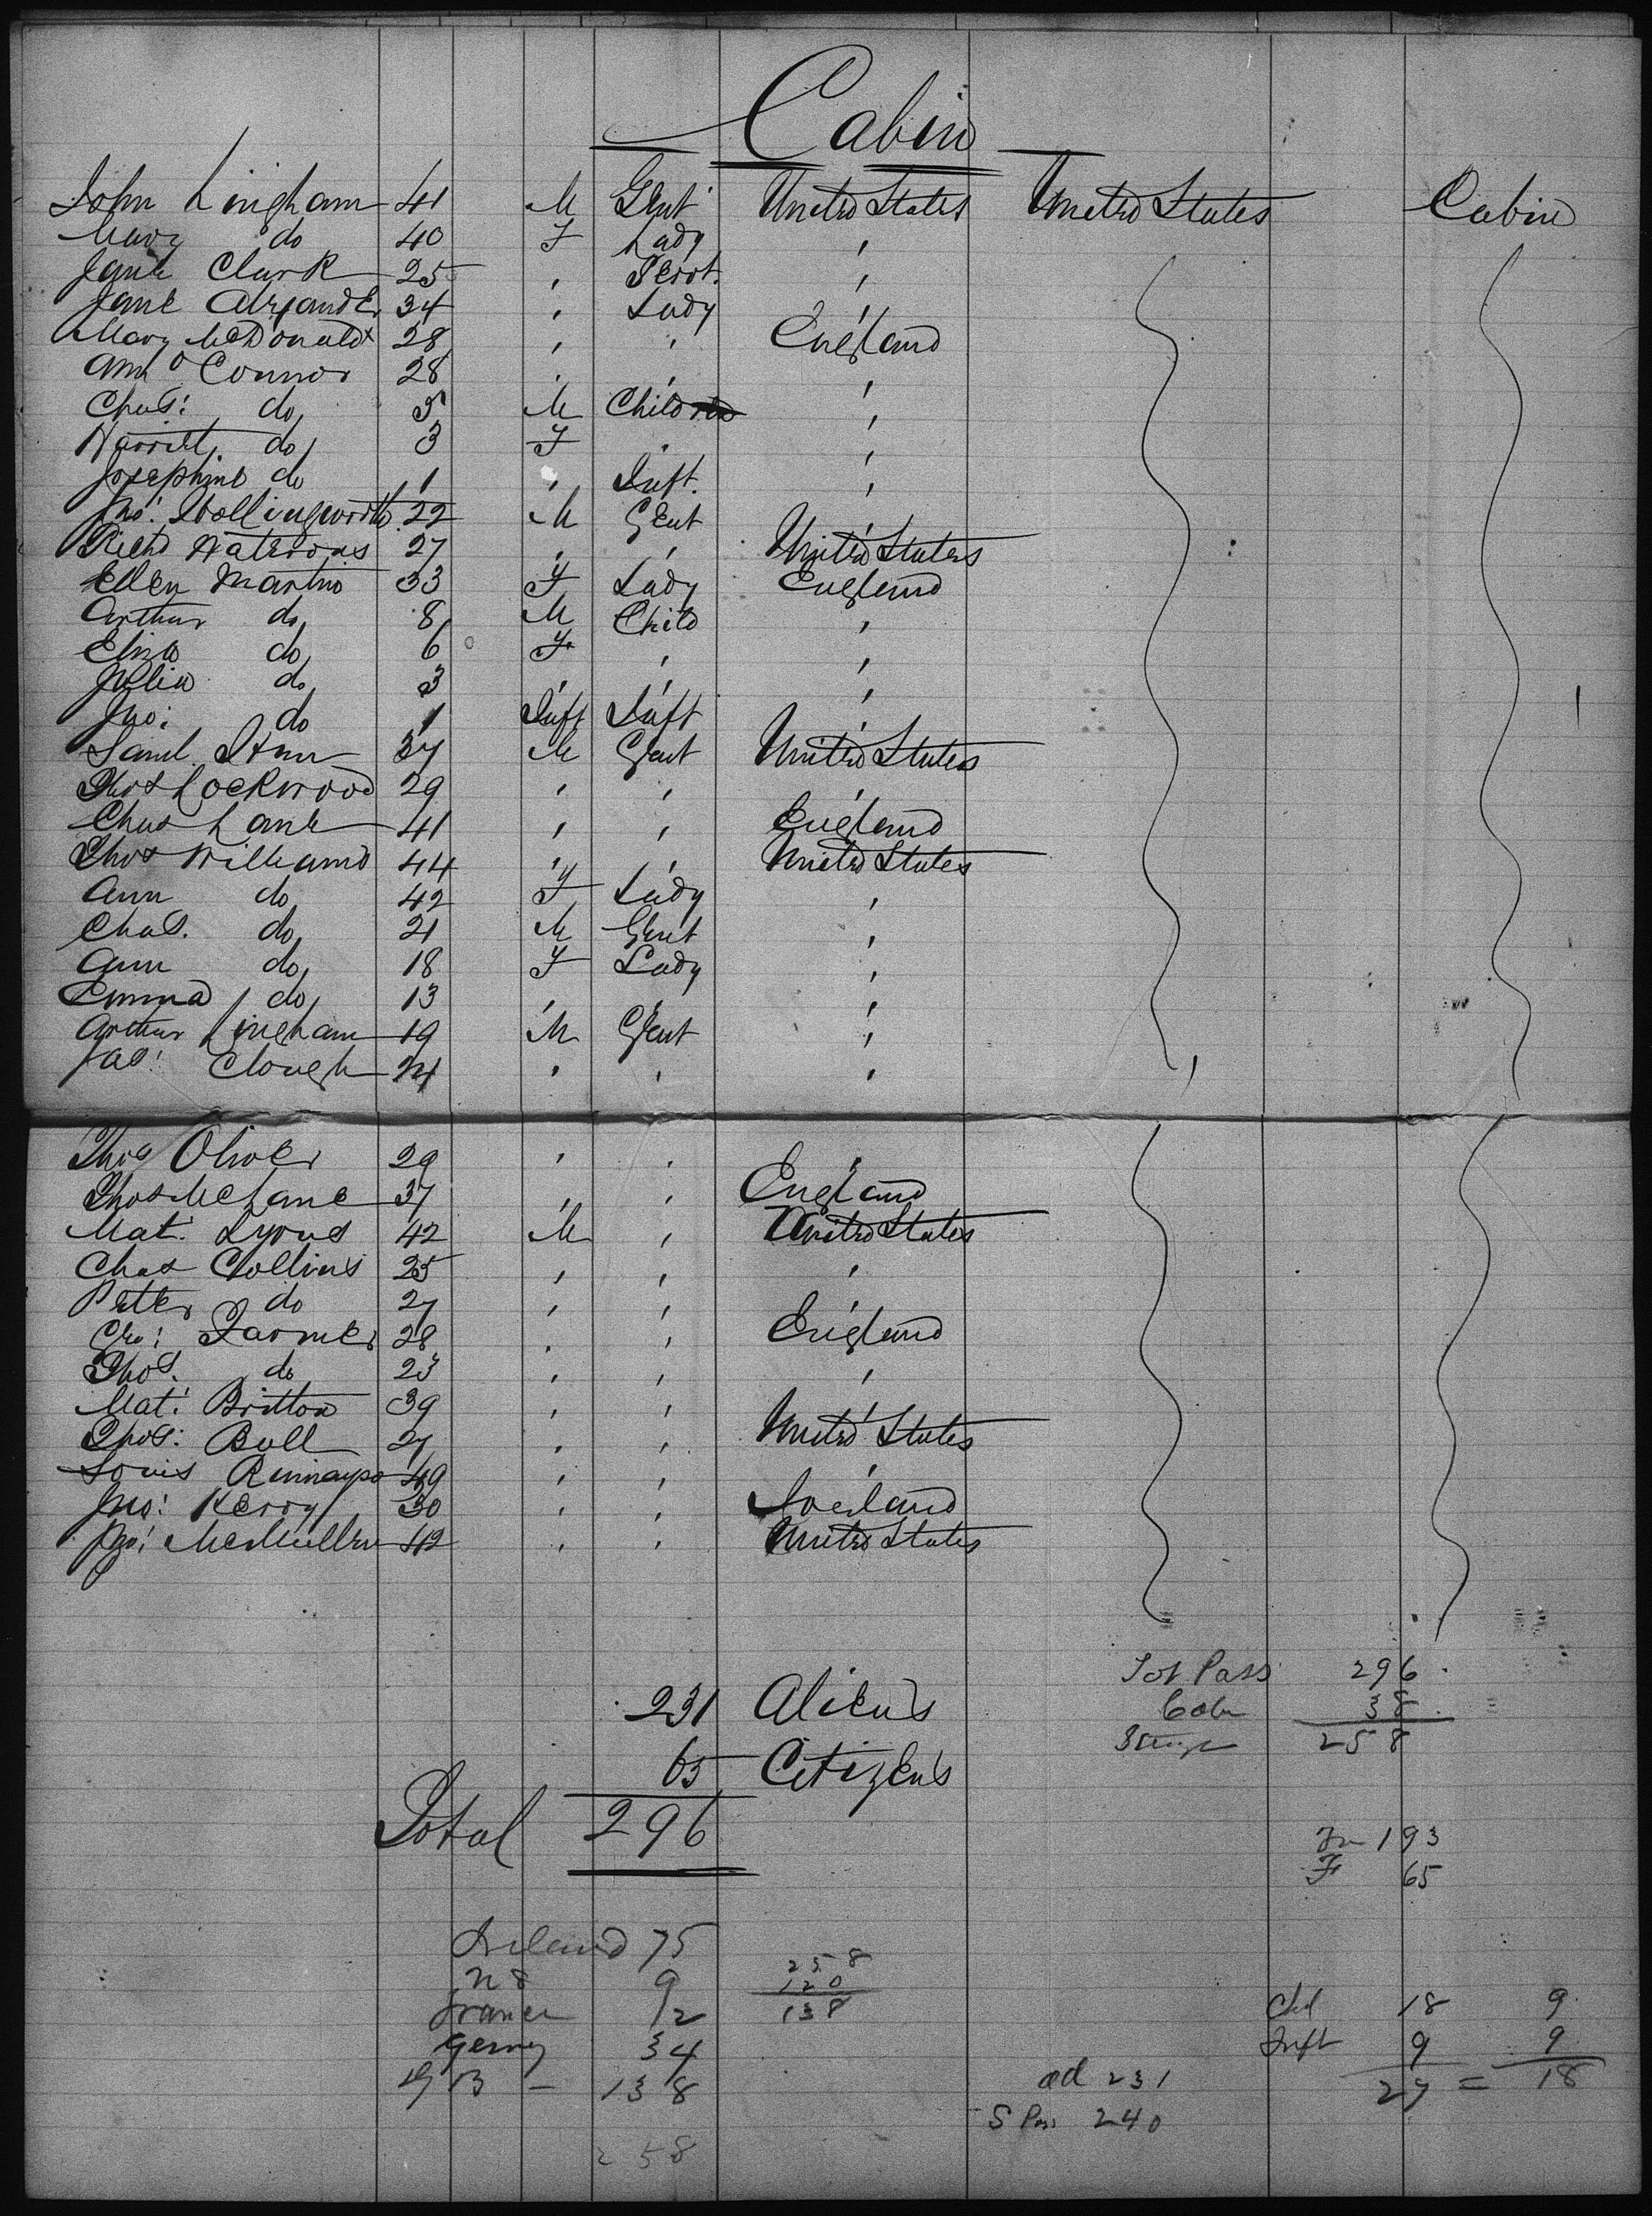 Cabin
John Lingham 41 M Gent United States United States Cabin
Mary do 40 F Lady "
Jane Clark 25 " Servt. "
Jane Alexander 34 " Lady "
Mary McDonald 28 " " England
Ann O Connor 28 " " "
Chas: do 5 M Child "
Harriet do 3 F " "
Josephine do 1 " Inft. "
Jno: Hollingworth 22 M Gent "
Richd 27 " " United States
Ellen Martin 33 F Lady England
Arthur do 8 M Child "
Eliza do 6 F " "
Julia do 3 " " "
Jno: do 1 Inft Inft "
Saml 37 M Gent United States
Thos Lockwood 29 " " "
Chas Lane 41 " " England
Thos Williams 44 " " United States
Ann do 42 F Lady "
Chas. do 21 M Gent "
Ann do 18 F Lady "
Emma do 13 " " "
Arthur Lingham 19 M Gent "
Jas: Clough 24 " " "
Thos Oliver 29 " " "
Thos McLane 37 " " England
Mat: Lyons 42 M " United States
Chas Collins 25 " " "
Peter do 27 " " "
Geo: Farmer 28 " " England
Thos. do 23 " " "
Mat: Britton 39 " " "
Thos: Bull 27 " " United States
Louis 49 " " "
Jno: Kerry 30 " " Ireland
Jno: McMullen 42 " " United States
Tot Pass 296
Cabn 38
Steerge 258
231 Aliens
65 Citizens
Total 296
M 193
F 65
Ireland 75
US 9
France 12
Germy 34
G B - 138
258
258
120
138
Chd 18 9
Inft 9 9
27 = 18
ad 231
S Pas 240